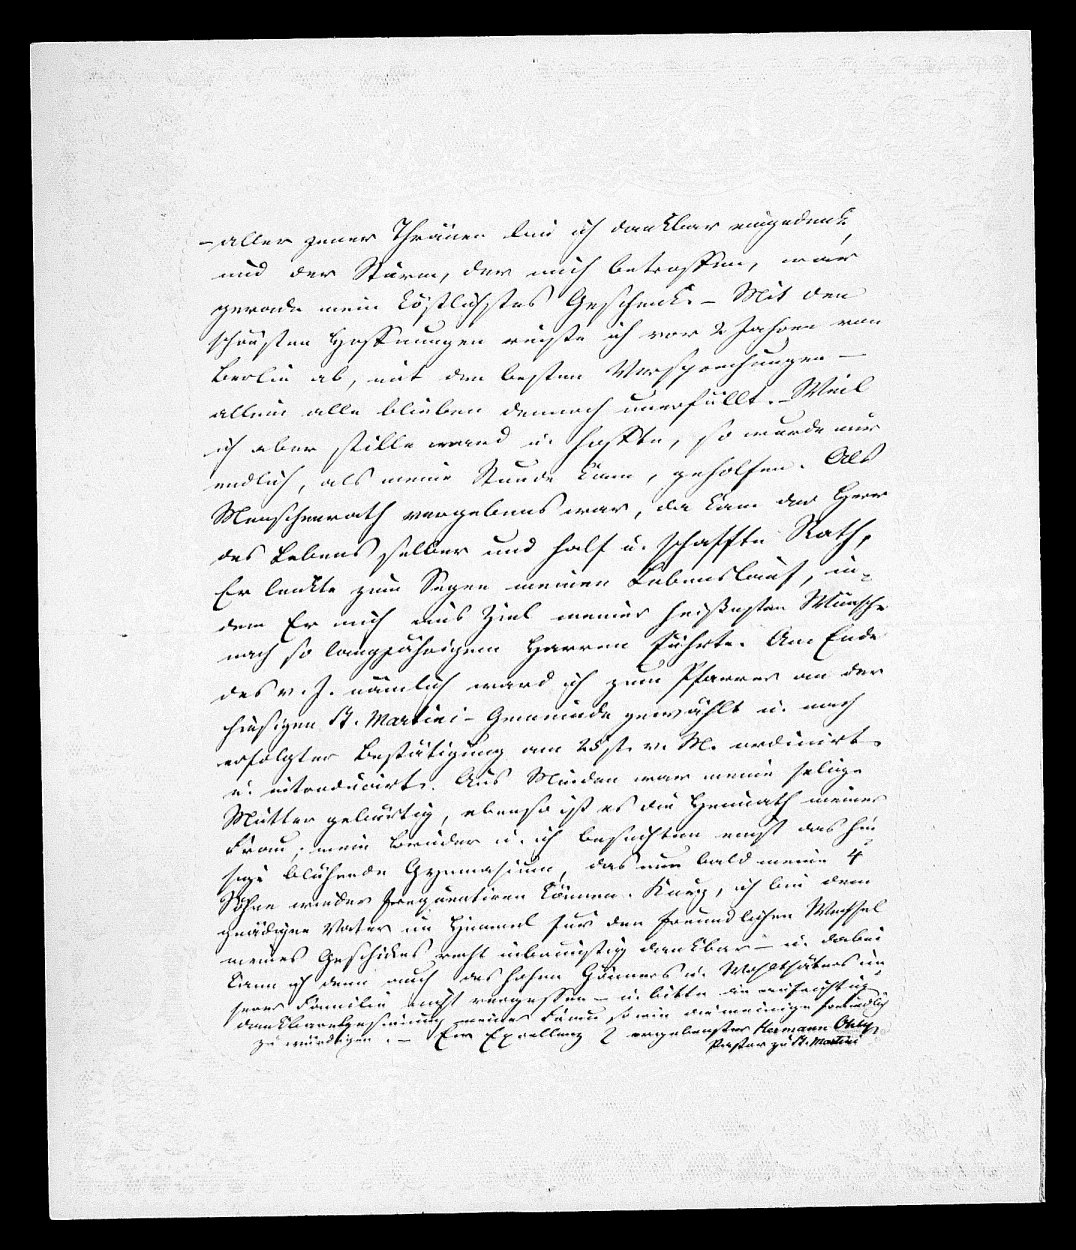 – aller jener Thränen bin ich dankbar eingedenk,
und der Sturm, der mich betroffen, war
gerade mein köstlichstes Geschenk. – Mit den
schönsten Hoffnungen reiste ich vor 2 Jahren von
Berlin ab, mit den besten Versprechungen –
allein alle blieben dennoch unerfüllt. – Weil
ich aber stille ward u. hoffte, so wurde mir
endlich, als meine Stunde kam, geholfen. Als
Menschenrath vergebens war, da kam der Herr
des Lebens selber und half u. schaffte Rath,
Er lenkte zum Segen meinen Lebenslauf, in-
dem Er mich ans Ziel meiner heißesten Wünsche
nach so langjährigem Harren führte. Am Ende
des v. J. nämlich ward ich zum Pfarrer an der
hiesigen St. Martini-Gemeinde gewählt u. nach
erfolgter Bestätigung am 28st. v. M. ordinirt
u. introducirt. Aus Minden war meine selige
Mutter gebürtig, ebenso ist es die Heimath meiner
Frau; mein Bruder u. ich besuchten einst das hie-
sige blühende Gymnasium, das nun bald meine 4
Söhne wieder frequentiren können. Kurz, ich bin dem
gnädigen Vater im Himmel für den freundlichen Wechsel
meines Geschickes recht inbrünstig dankbar – u. dabei
kann ich denn auch des hohen Gönners u. Wohlthäters un-
serer Familie nicht vergessen – u. bitte die aufrichtig
dankbare Gesinnung meiner Frau so wie die meinige freundlich
zu würdigen. – Ew Excellenz ergebenster Hermann
Pastor zu St. Martini